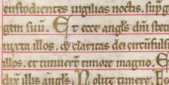 custodientes uigilias noctis. supra
gregem suum. Et ecce angl̃s dñi stetit
iuxta illos. et claritas dei circũfulsit
illos. et timuerũt timore magno. Et
dix̃ illis angl̃s. Nolite timere.